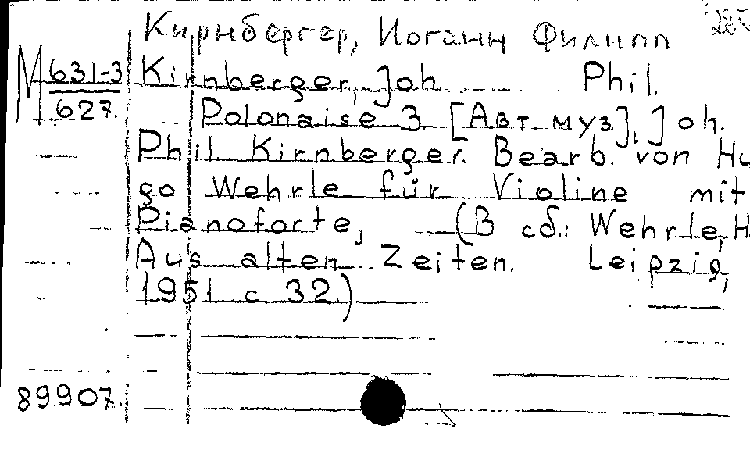 Кирнбергер, Иоганн Филипп
М 631-3 Kirnberger, Joh. Phil.
627. Polonaise 3. [Авт. муз.], Joh.
Phil. Kirnberger. Bearb. von Hu
go Wehrle für Violine mit
Pianoforte, (В сб.: Wehrle, H
Aus alten Zeiten. Leipzig,
1951 с 32.)
89907.